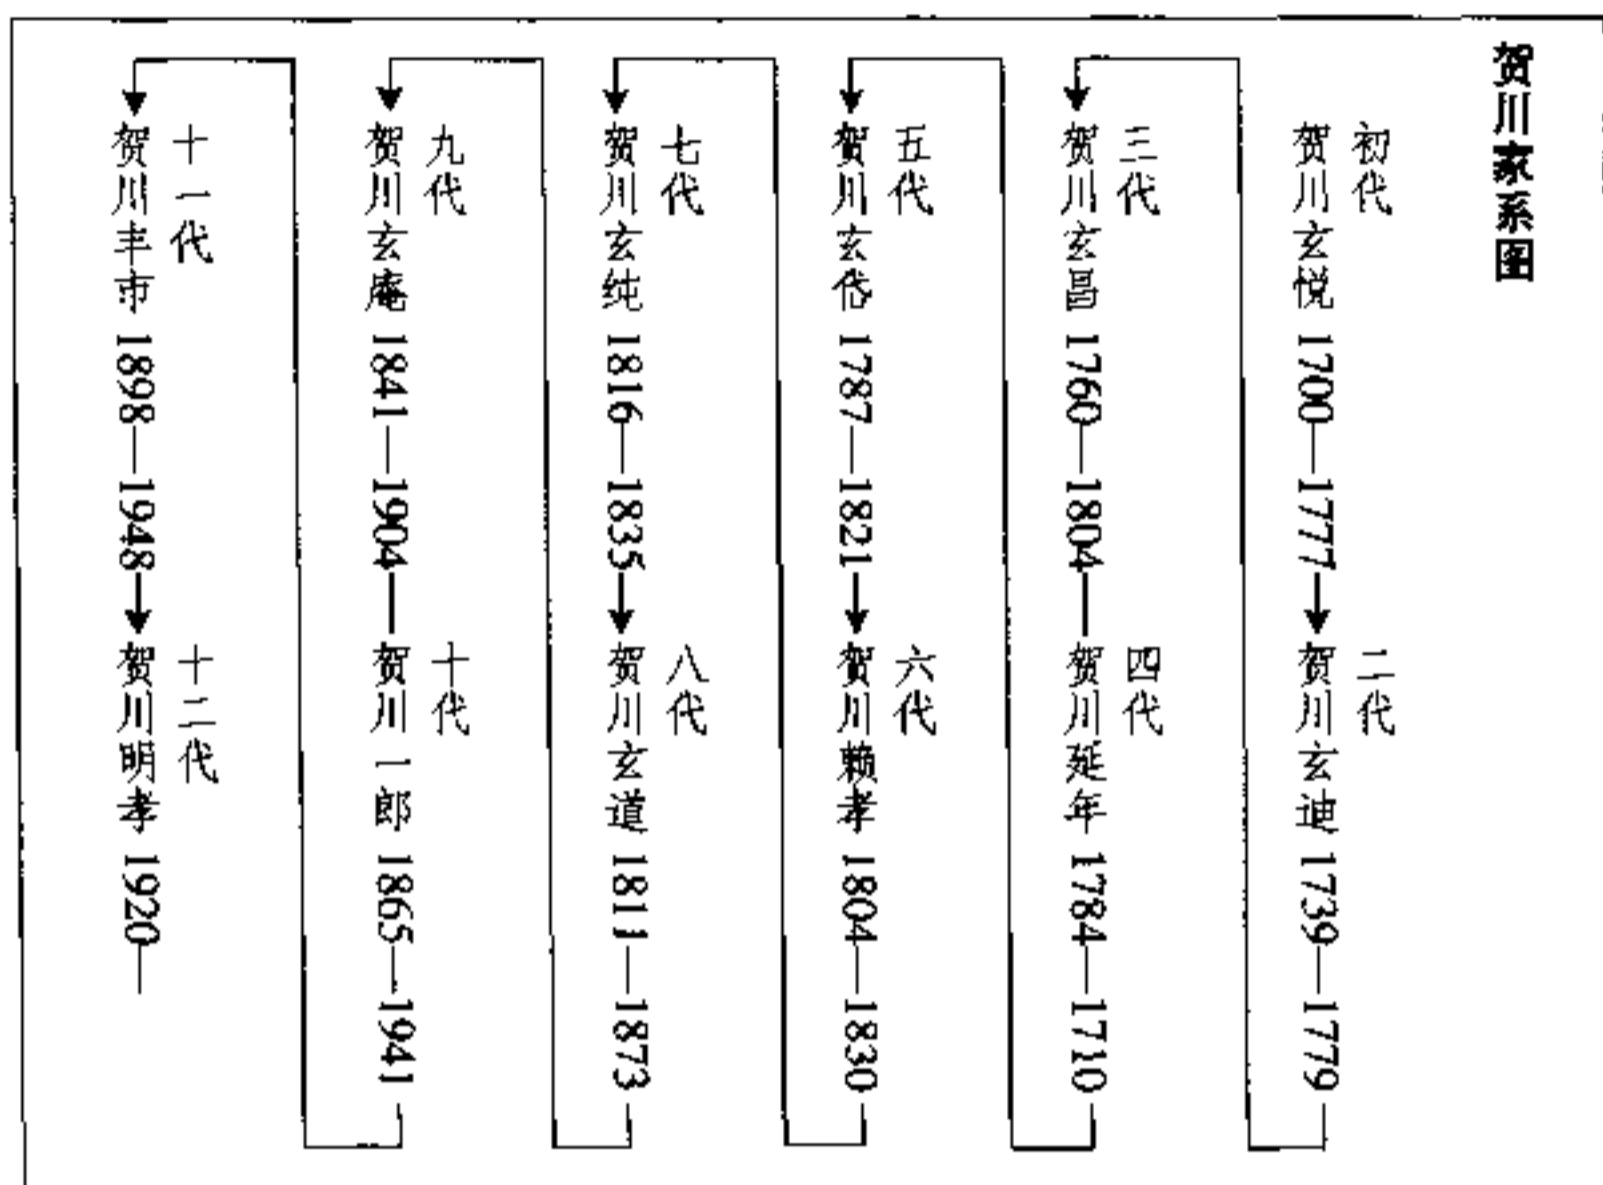 贺川家系图
初代
贺川玄悦 1700—1777
二代
贺川玄迪 1739—1779
三代
贺川玄昌 1760—1804
四代
贺川延年 1784—1710
五代
贺川玄岱 1787—1821
六代
贺川赖孝 1804—1830
七代
贺川玄纯 1816—1835
八代
贺川玄道 1811—1873
九代
贺川玄庵 1841—1904
十代
贺川一郎 1865—1941
十一代
贺川丰市 1898—1948
十二代
贺川明孝 1920—